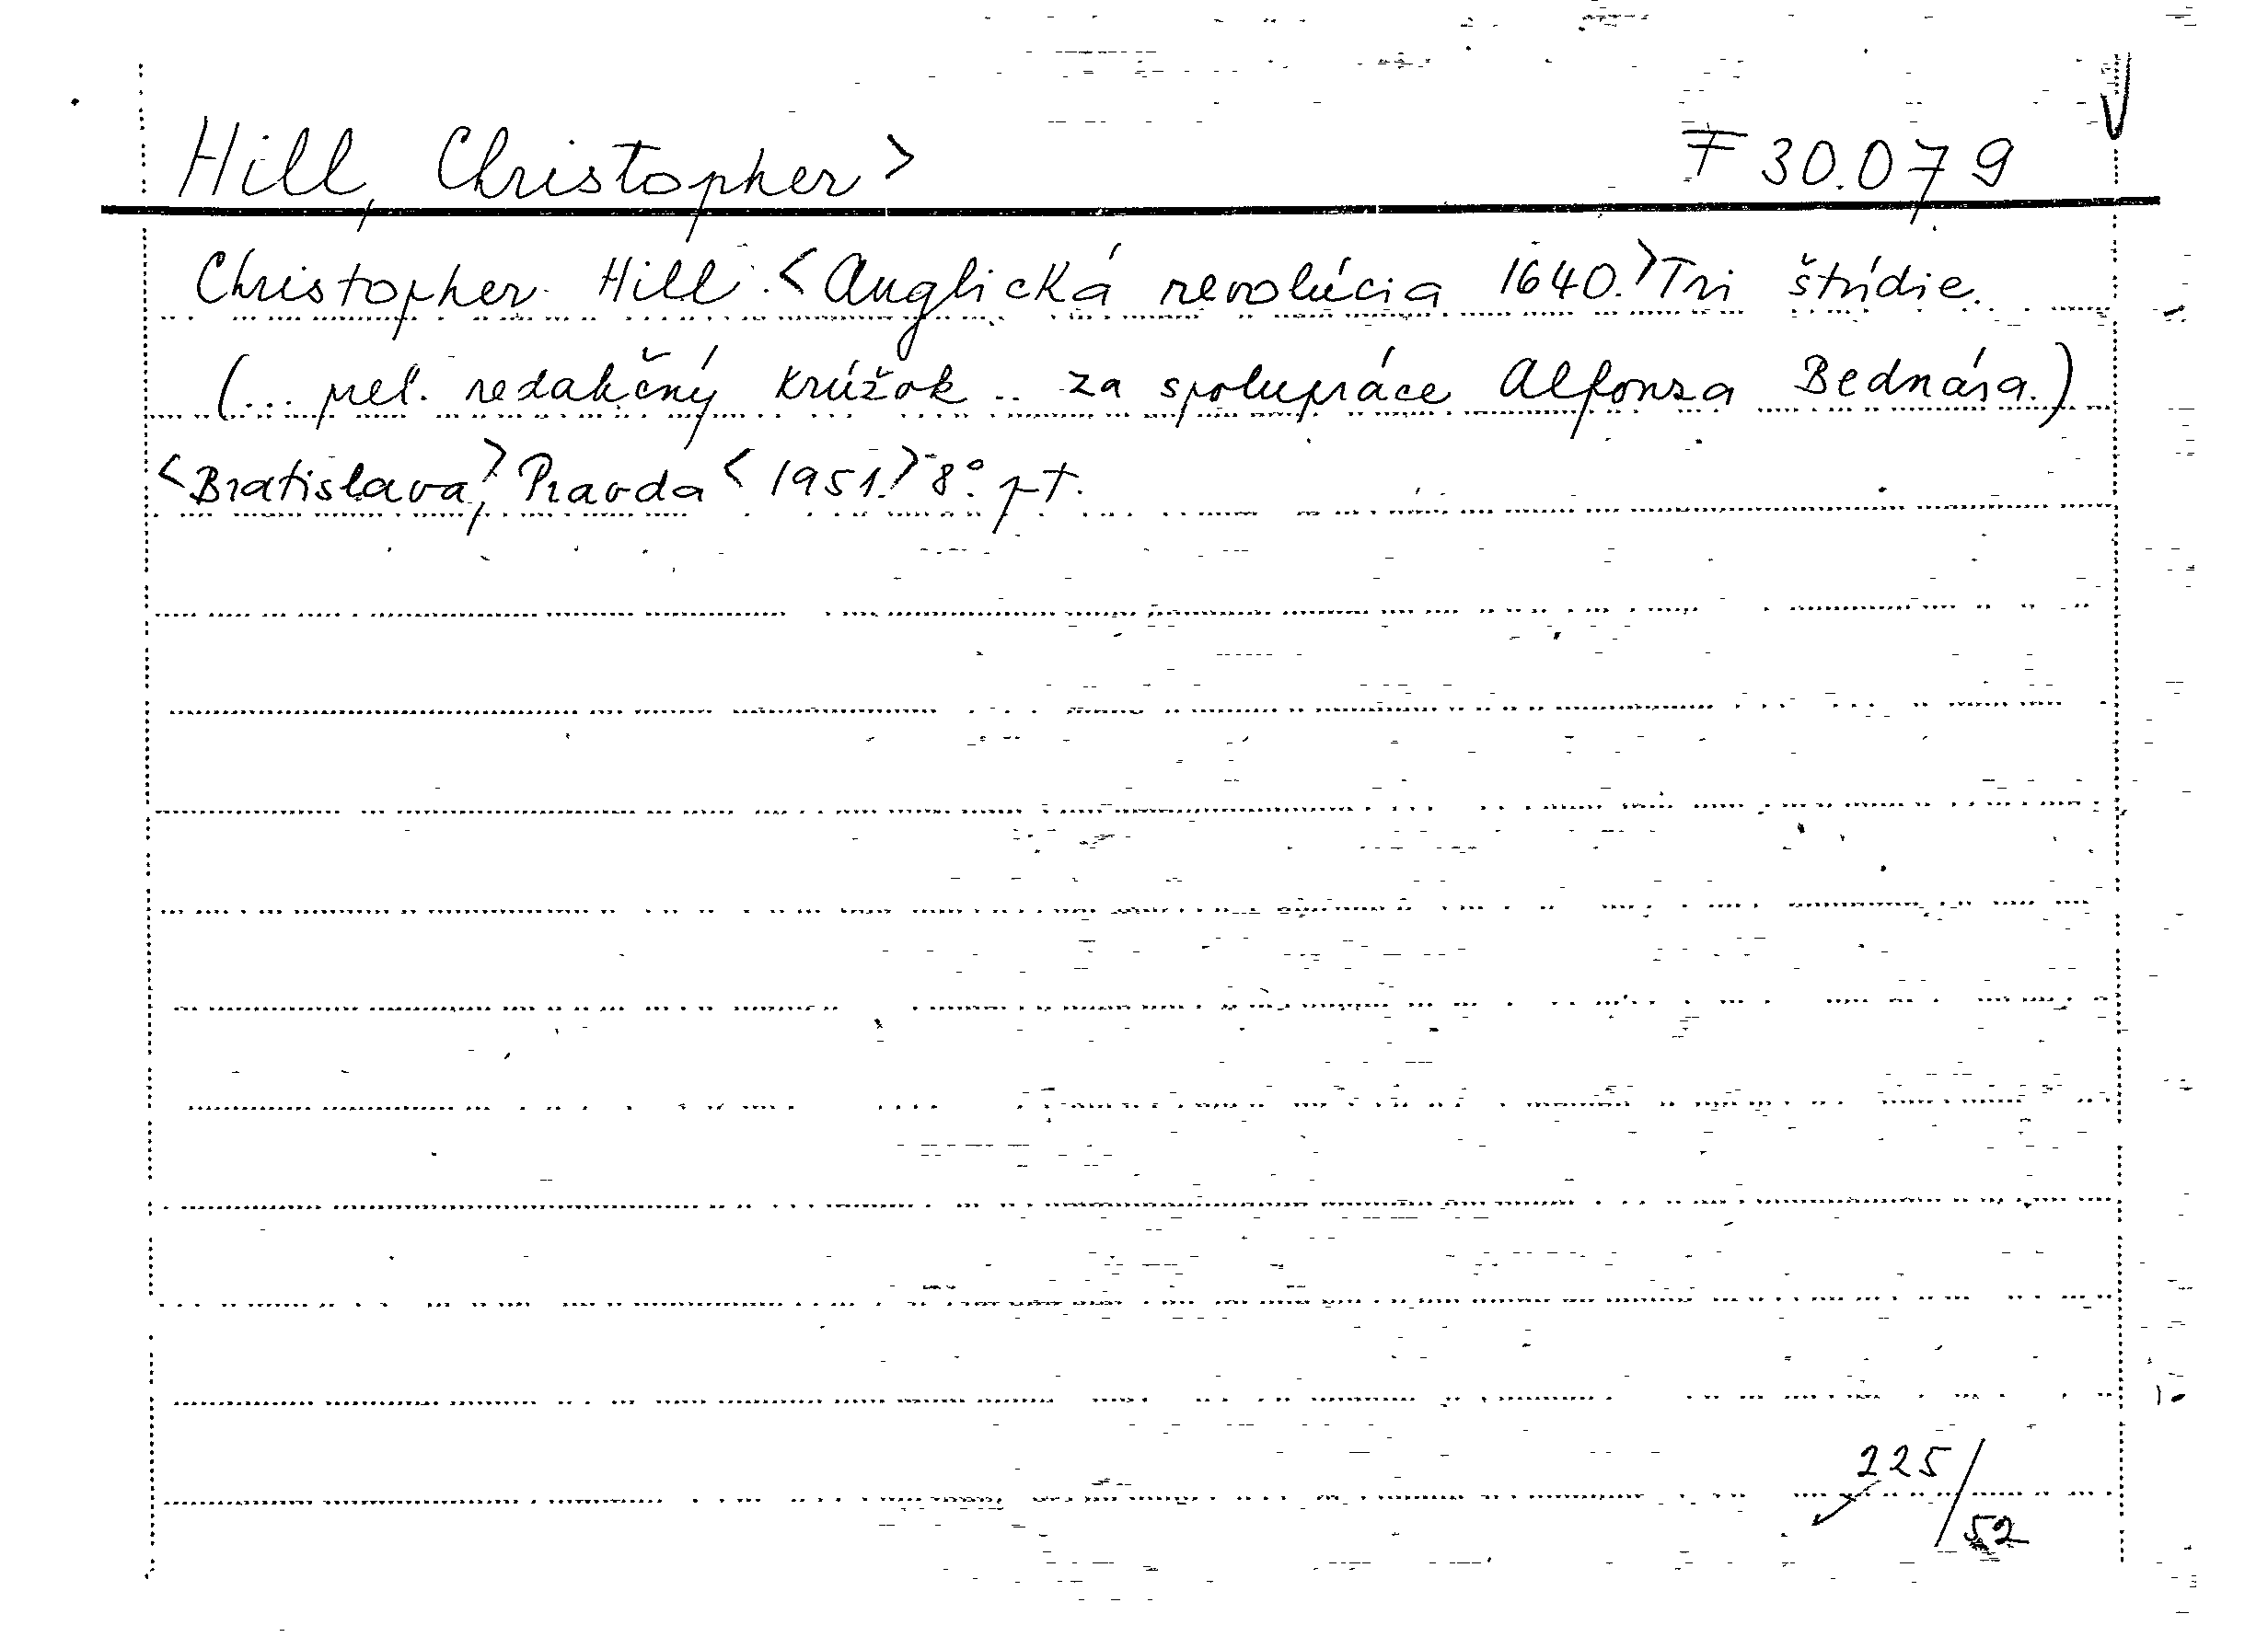 Hill, Christopher> F 30.079
Christopher Hill: <Anglická revolúcia 1640.> Tri štúdie.
(... prel. redakčný krúžok .. za spolupráce Alfonza Bednára.)
<Bratislava,> Pravda <1951.> 8°. pt.
225/
52